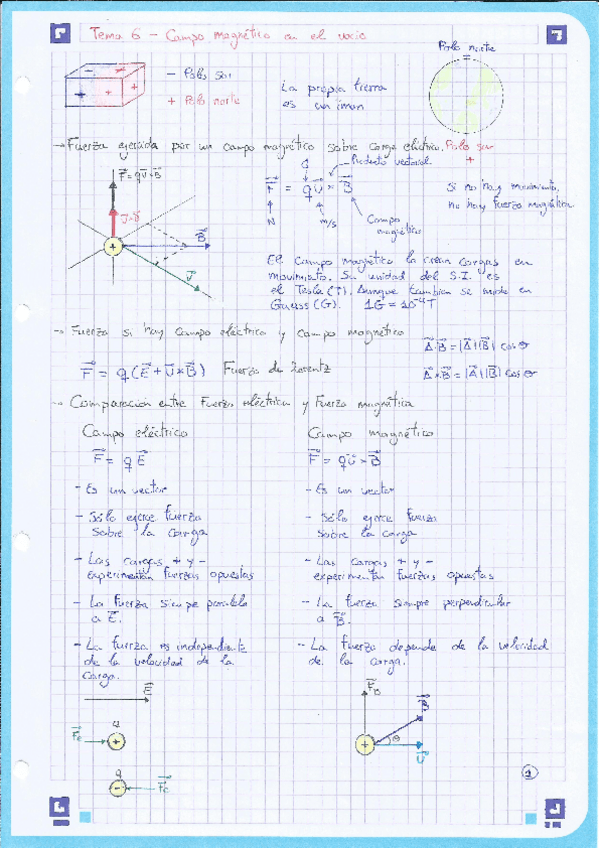 Tema 6 - Campo magnético en el vacío
- Polo sur
+ Polo norte
La propia tierra
es un iman
Polo norte
=
Polo sur
+
→ Fuerza ejercida por un campo magnético sobre carga eléctrica.
F = qU×B
J=û
B
U
C
Producto vectorial
F = qU × B
N
m/s
Campo
magnético
Si no hay movimiento,
no hay fuerza magnética
El campo magnético lo crean cargas en
movimiento. Su unidad del S.I. es
el Tesla (T). Aunque tambien se mide en
Gauss (G). 1G = 10⁻⁴T
→ Fuerza si hay campo eléctrico y campo magnético
F = q(E + U×B) Fuerza de Lorentz
A·B = |A||B| cos σ
A×B = |A||B| cos σ
→ Comparación entre Fuerza eléctrica y Fuerza magnética
Campo eléctrico
F = qE
- Es un vector
- Sólo ejerce fuerza
sobre la carga
- Las cargas + y -
experimentan fuerzas opuestas
- La fuerza siempe paralela
a E.
- La fuerza es independiente
de la velocidad de la
carga.
E
q
Fe
+
q
Fe
-
Campo magnético
F = qU × B
- Es un vector
- Sólo ejerce fuerza
sobre la carga
- Las cargas + y -
experimentan fuerzas opuestas
- La fuerza siempre perpendicular
a B.
- La fuerza depende de la velocidad
de la carga.
F_B
B
θ
+
U
1